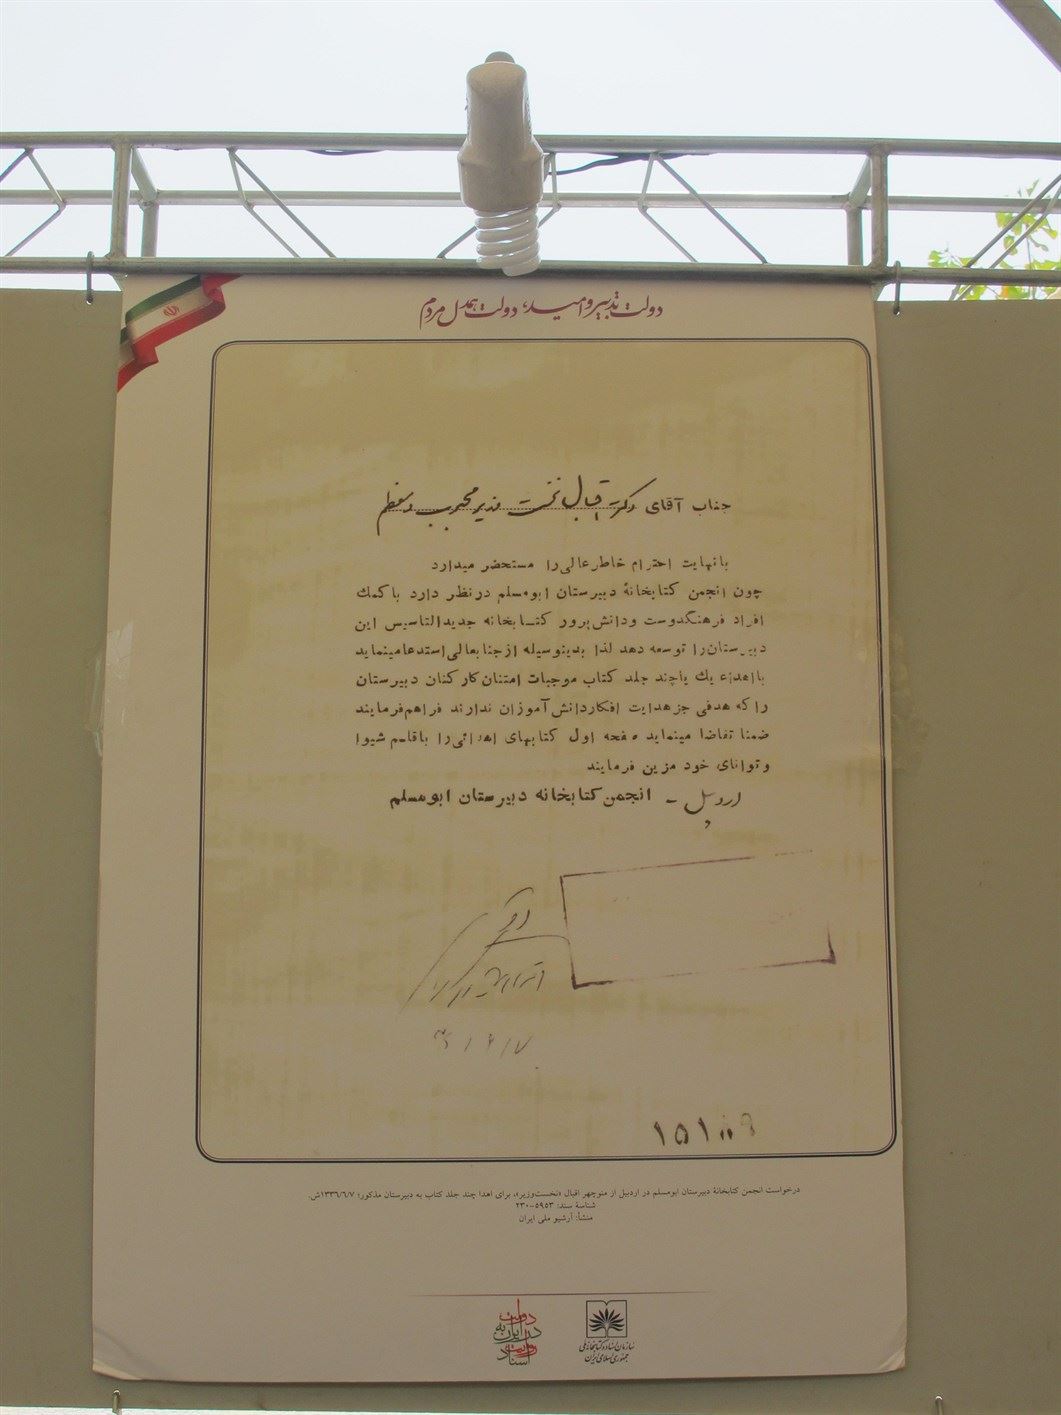 دولت تدبیر و امید، دولت همدل مردم
جناب آقای دکتر اقبال نخست وزیر محبوب و معظم
با نهایت احترام خاطر عالی را مستحضر میدارد
چون انجمن کتابخانهٔ دبیرستان ابومسلم در نظر دارد با کمك
افراد فرهنگدوست و دانش پرور کتابخانه جدیدالتاسیس این
دبیرستان را توسعه دهد لذا بدینوسیله از جنابعالی استدعا مینماید
با اهداء یك یا چند جلد کتاب موجبات امتنان کارکنان دبیرستان
را که هدفی جز هدایت افکار دانش آموزان ندارند فراهم فرمایند
ضمنا تقاضا مینماید صفحه اول کتابهای اهدائی را با قلم شیوا
و توانای خود مزین فرمایند
اردبیل - انجمن کتابخانه دبیرستان ابومسلم
درخواست انجمن کتابخانهٔ دبیرستان ابومسلم در اردبیل از منوچهر اقبال «نخست‌وزیر»، برای اهدا چند جلد کتاب به دبیرستان مذکور؛ ۱۳۳۶/۶/۷ش.
شناسهٔ سند: ۵۹۵۳-۲۳۰
منشأ: آرشیو ملی ایران
دولت
در ایران به
روایت
اسناد
سازمان اسناد و کتابخانه ملی
جمهوری اسلامی ایران